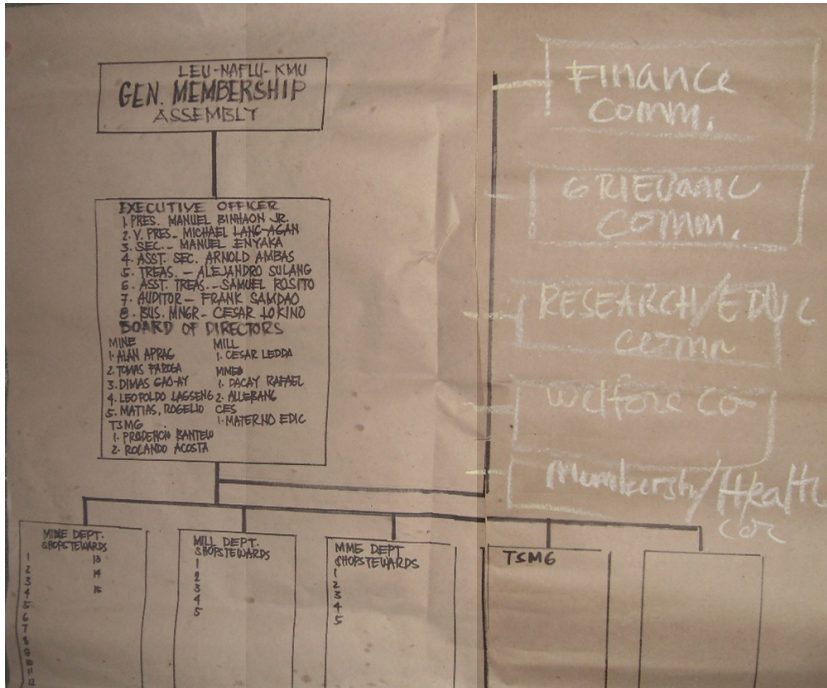 LEU-NAFLU-KMU
GEN. MEMBERSHIP
ASSEMBLY
EXECUTIVE OFFICER
1. PRES. MANUEL BINHAON JR.
2. V. PRES. - MICHAEL LANG-AGAN
3. SEC. - MANUEL ENYAKA
4. ASST. SEC. ARNOLD AMBAS
5. TREAS. - ALEJANDRO SULANG
6. ASST. TREAS. - SAMUEL ROSITO
7. AUDITOR - FRANK SAMDAO
8. BUS. MNGR - CESAR TOKINO
BOARD OF DIRECTORS
MINE
1. ALAN APRAG
2. TOMAS
3. DIMAS GAO-AY
4. LEOPOLDO LAGSENG
5. MATIAS, ROGELIO
TSMG
1. BANTEW
2. ROLANDO ACOSTA
MILL
1. CESAR LEDDA
1. DACAY RAFAEL
2. ALLEBANG
CES
1. MATERNO EDIC
Finance
comm.
comm.
RESEARCH/EDUC
comm
welfare co
/Health
MINE DEPT.
SHOPSTEWARDS
1
2
3
4
5
6
7
8
9
10
11
12
13
14
15
MILL DEPT.
SHOPSTEWARDS
1
2
3
4
5
MME DEPT
SHOPSTEWARDS
1
2
3
4
5
TSMG